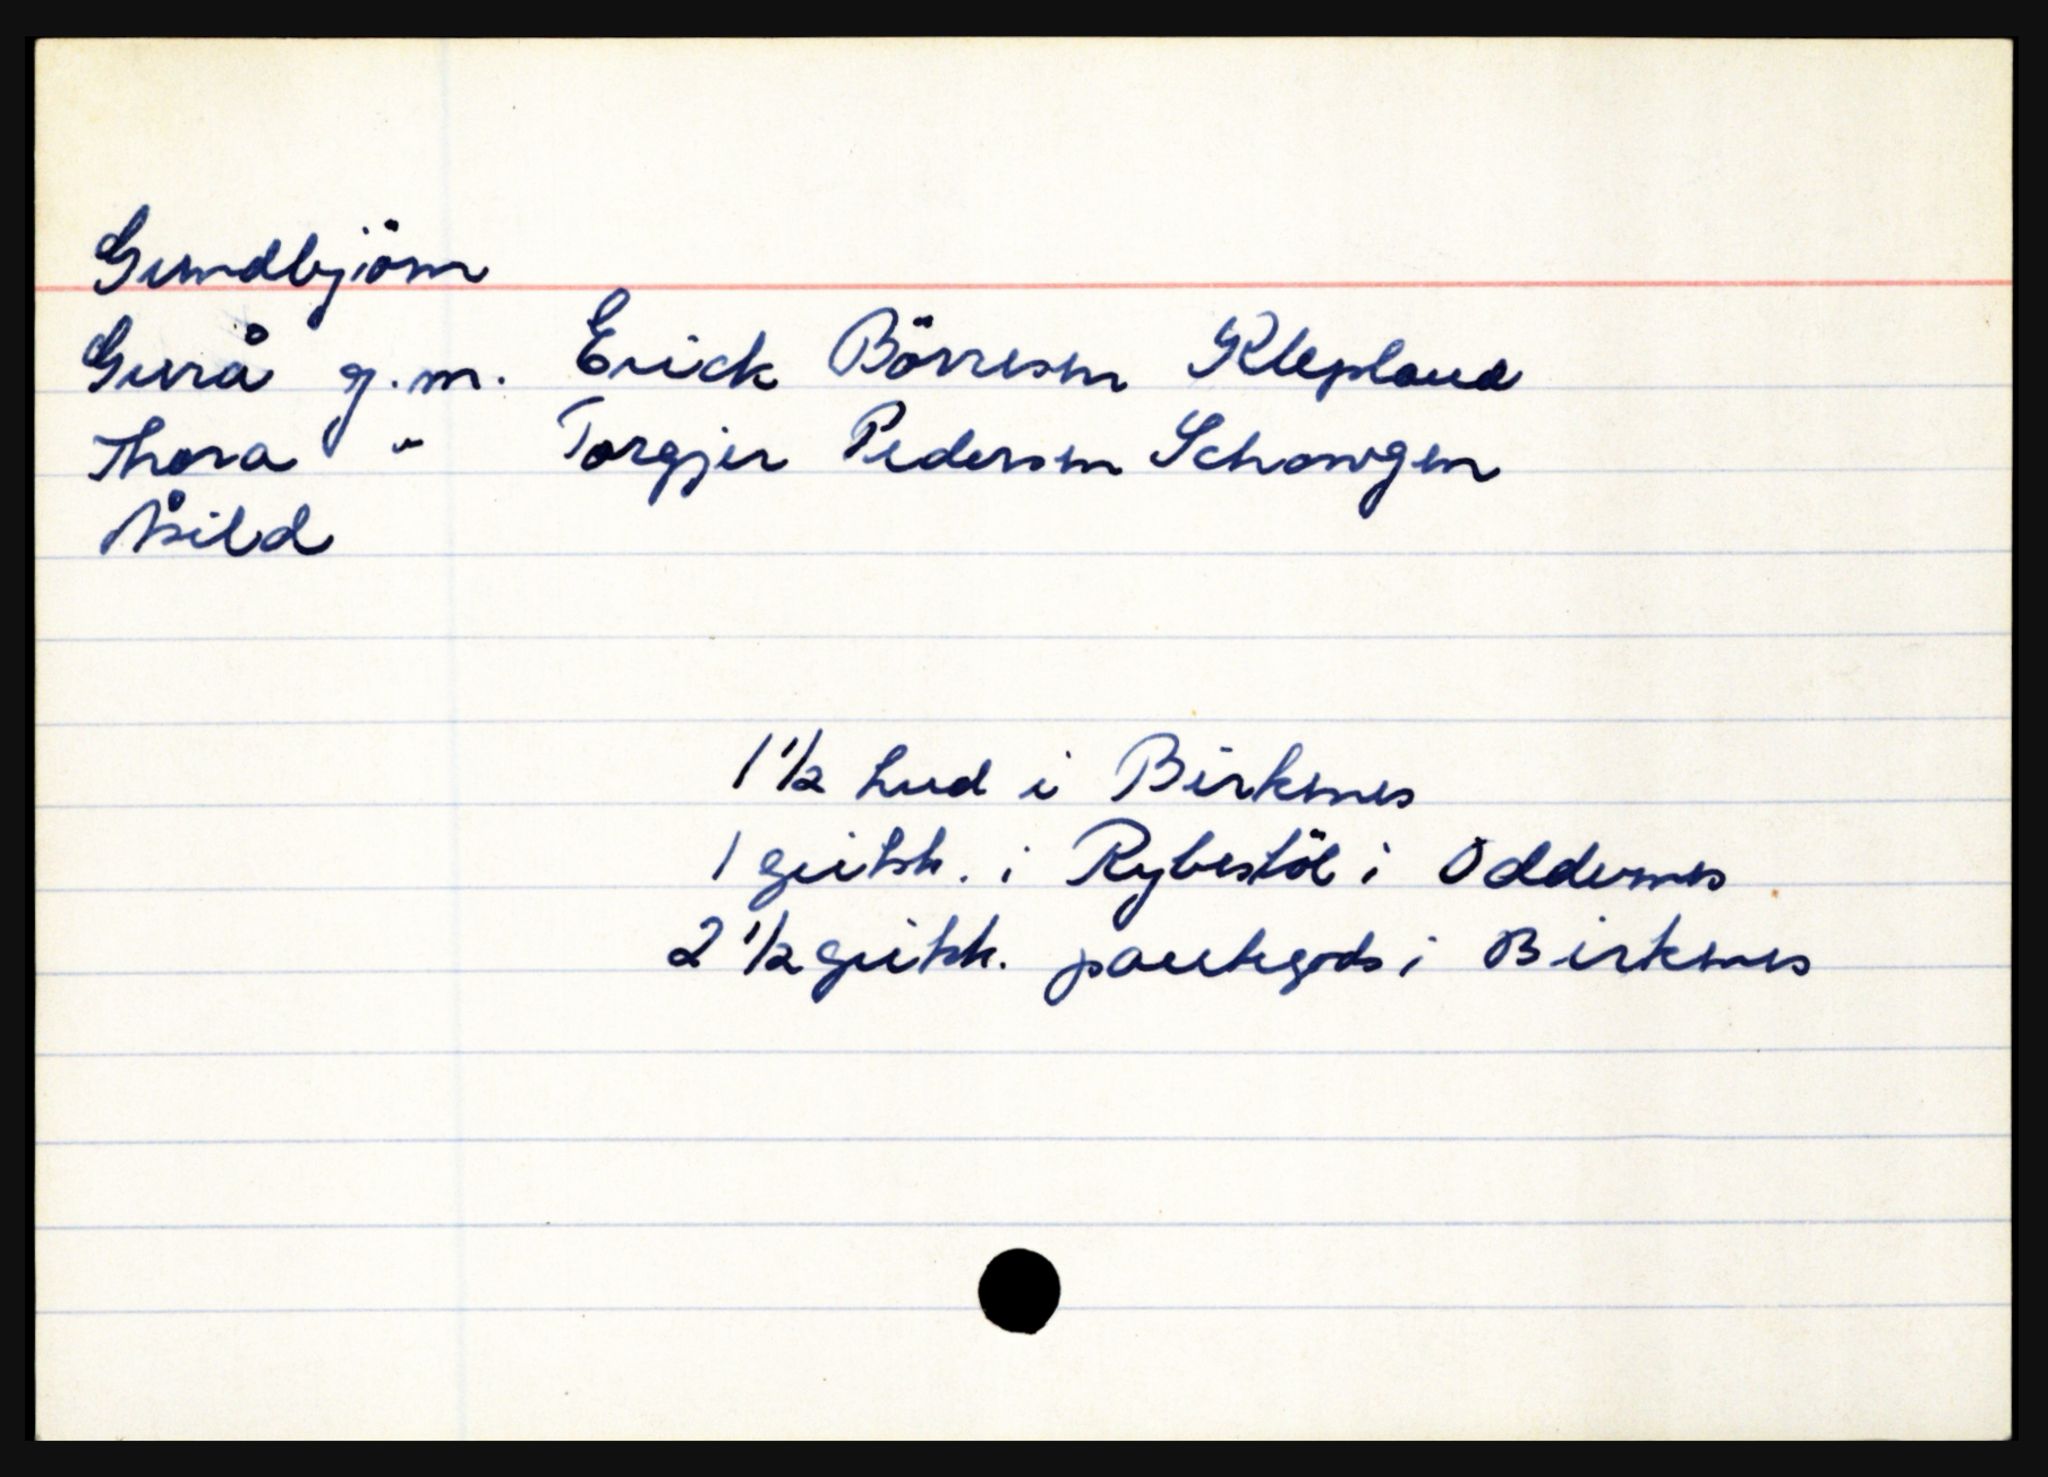 Gundbjörn
Gurå g.m. Erick Börresen Klepland
Thora " Torgjer Pedersen Schovgen
Åsild
1 1/2 hud i Birkenes
1 geitsk. i Rybestöl i Oddernes
2 1/2 geitsk. pantegods i Birkenes